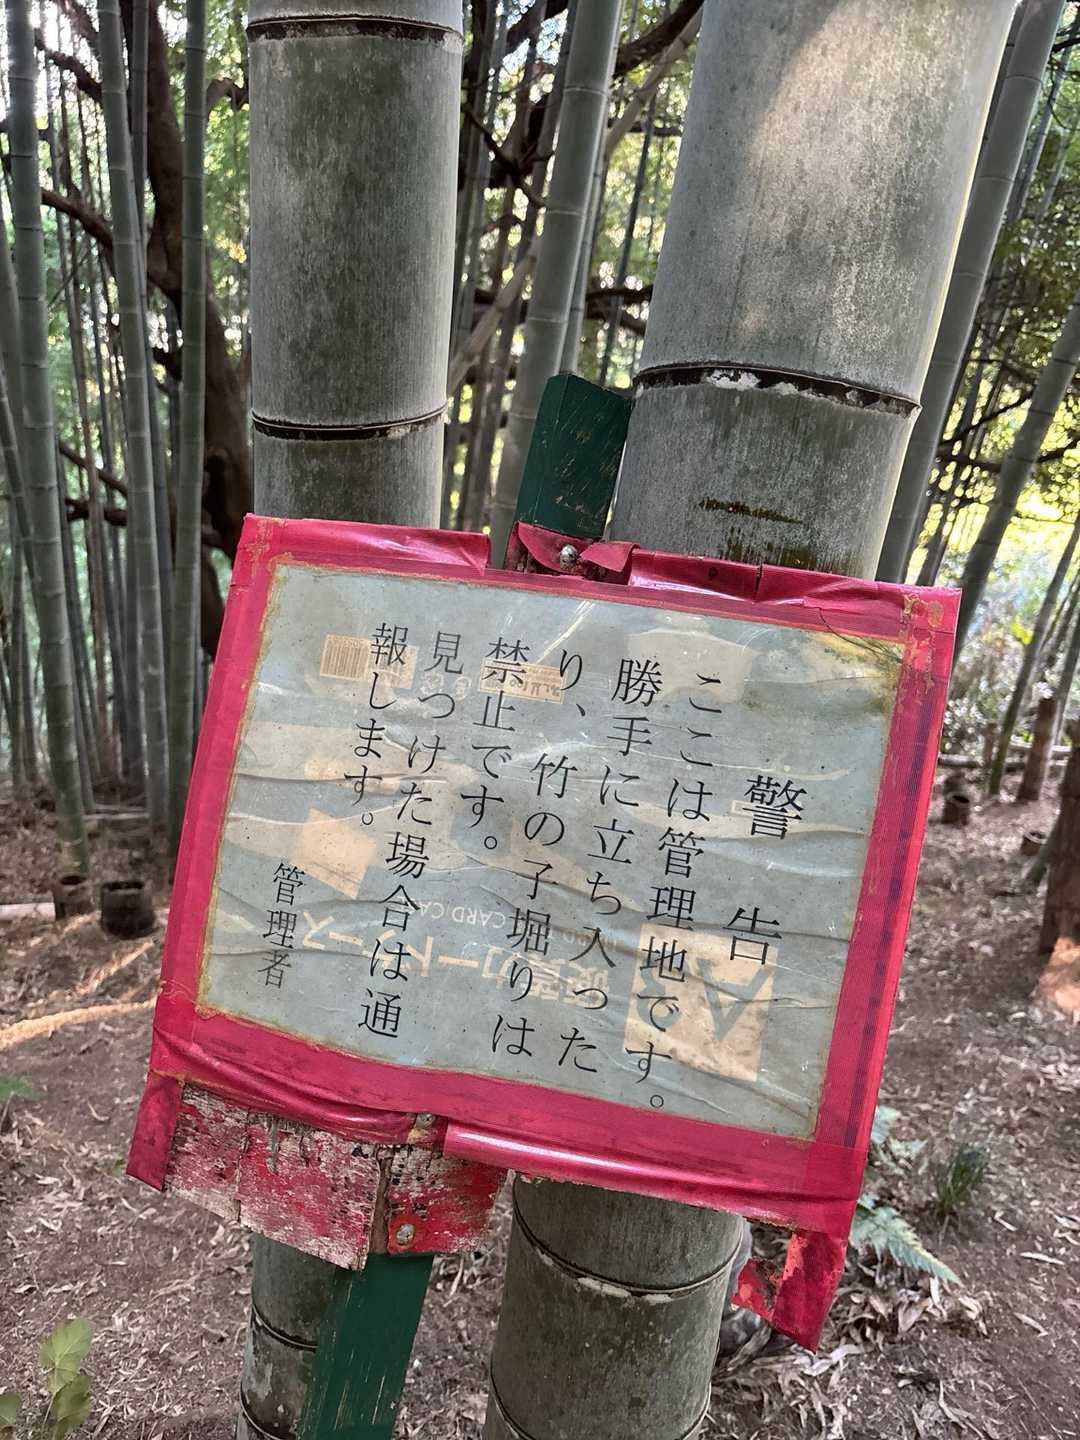 警告
ここは管理地です。
勝手に立ち入った
り、竹の子堀りは
禁止です。
見つけた場合は通
報します。
管理者
A3
硬質カードケース
HARD CARD CASE